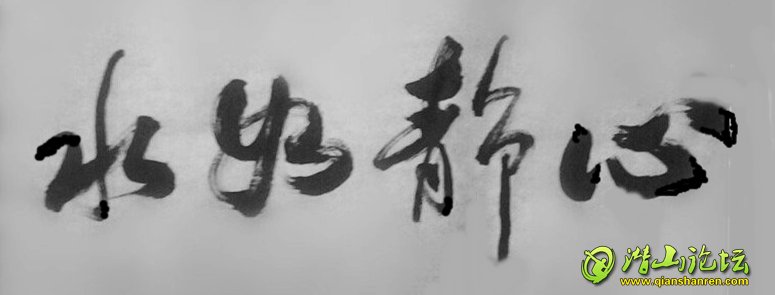 心静如水
潜山论坛
www.qianshanren.com